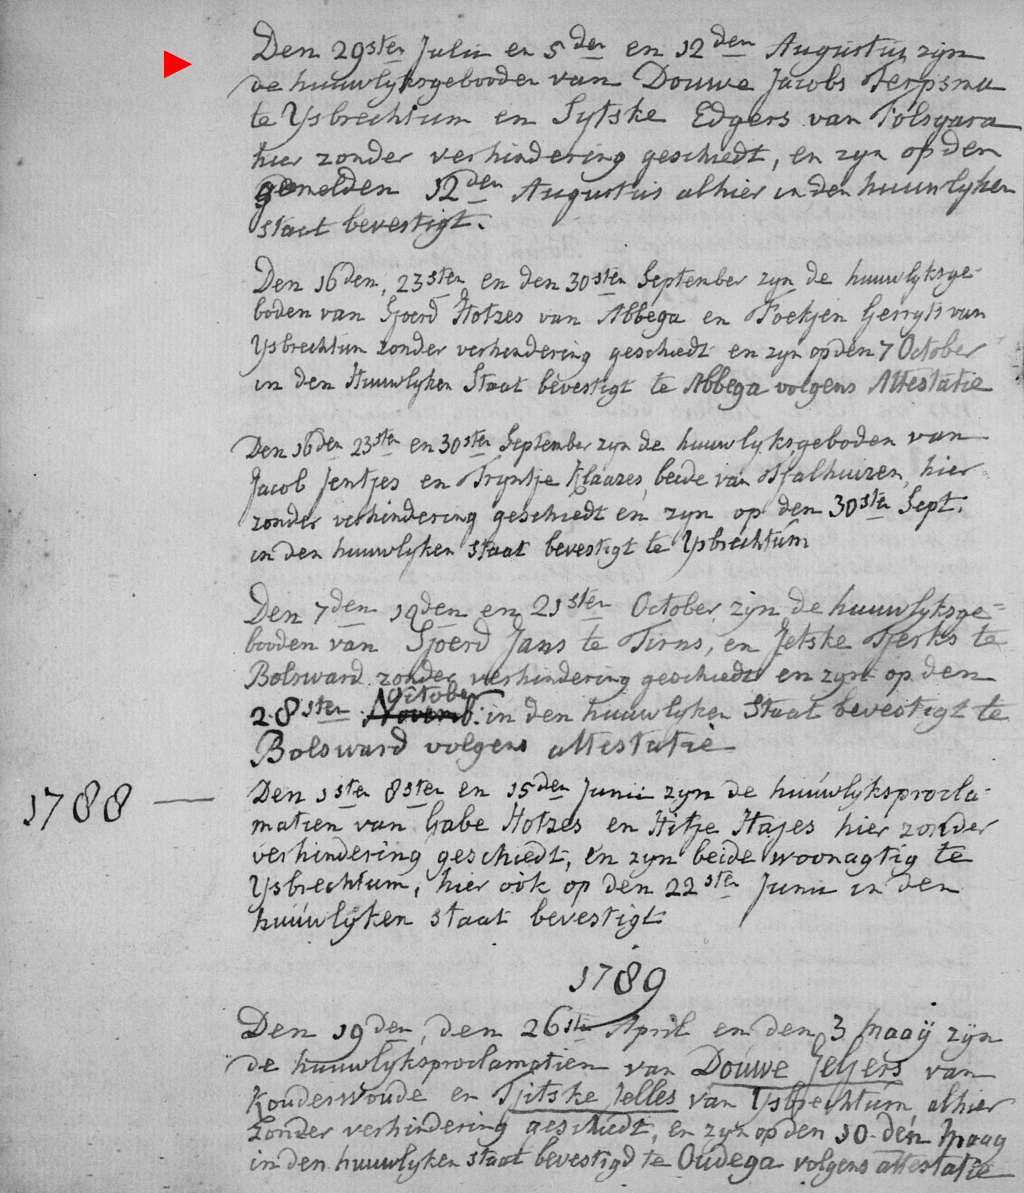 Den 29sten Julii en 5den en 12den Augustus zijn
de huuwlyksgebooden van Douwe Jacobs Terpsma
te Ysbrechtum en Sytske Edgers van Tolsgara
hier zonder verhindering geschiedt, en zyn op den
gemelden 12den Augustus alhier in den huuwlyken
staat bevestigt.
Den 16den, 23sten en den 30sten September zyn de huuwlyksge-
boden van Sjoerd Hotzes van Abbega en Foekjen Gerryts van
Ysbrechtum zonder verhindering geschiedt en zyn op den 7 October
in den Huuwlyken Staat bevestigt te Abbega volgens Attestatie
Den 16den 23sten en 30sten September zyn de huuwlyksgeboden van
Jacob Jentjes en Tryntje Klaazes, beide van Tjalhuizen, hier
zonder verhindering geschiedt en zyn op den 30sten Sept.
in den huuwlyken staat bevestigt te Ysbrechtum
Den 7den 19den en 21sten October zyn de huuwlyksge=
booden van Sjoerd Jans te Tirns, en Jetske Tjerks te
Bolsward zonder verhindering geschiedt en zyn op den
October
28sten Novemb. in den huuwlyken Staat bevestigt te
Bolsward volgens attestatie
1788 — Den 1sten 8sten en 15den Junii zyn de huuwlyksprocla-
matien van Gabe Hotzes en Hitje Hajes hier zonder
verhindering geschiedt, en zyn beide woonagtig te
Ysbrechtum, hier ook op den 22sten Junii in den
huuwlyken staat bevestigt
1789
Den 19den, den 26sten April en den 3 Maaij zyn
de huuwlyksproclamatien van Douwe Jeltjers van
Kouderwoude en Tjitske Jelles van Ysbrechtum, alhier
zonder verhindering geschiedt, en zyn op den 10den Maay
in den huuwlyken staat bevestigd te Oudega volgens attestatie